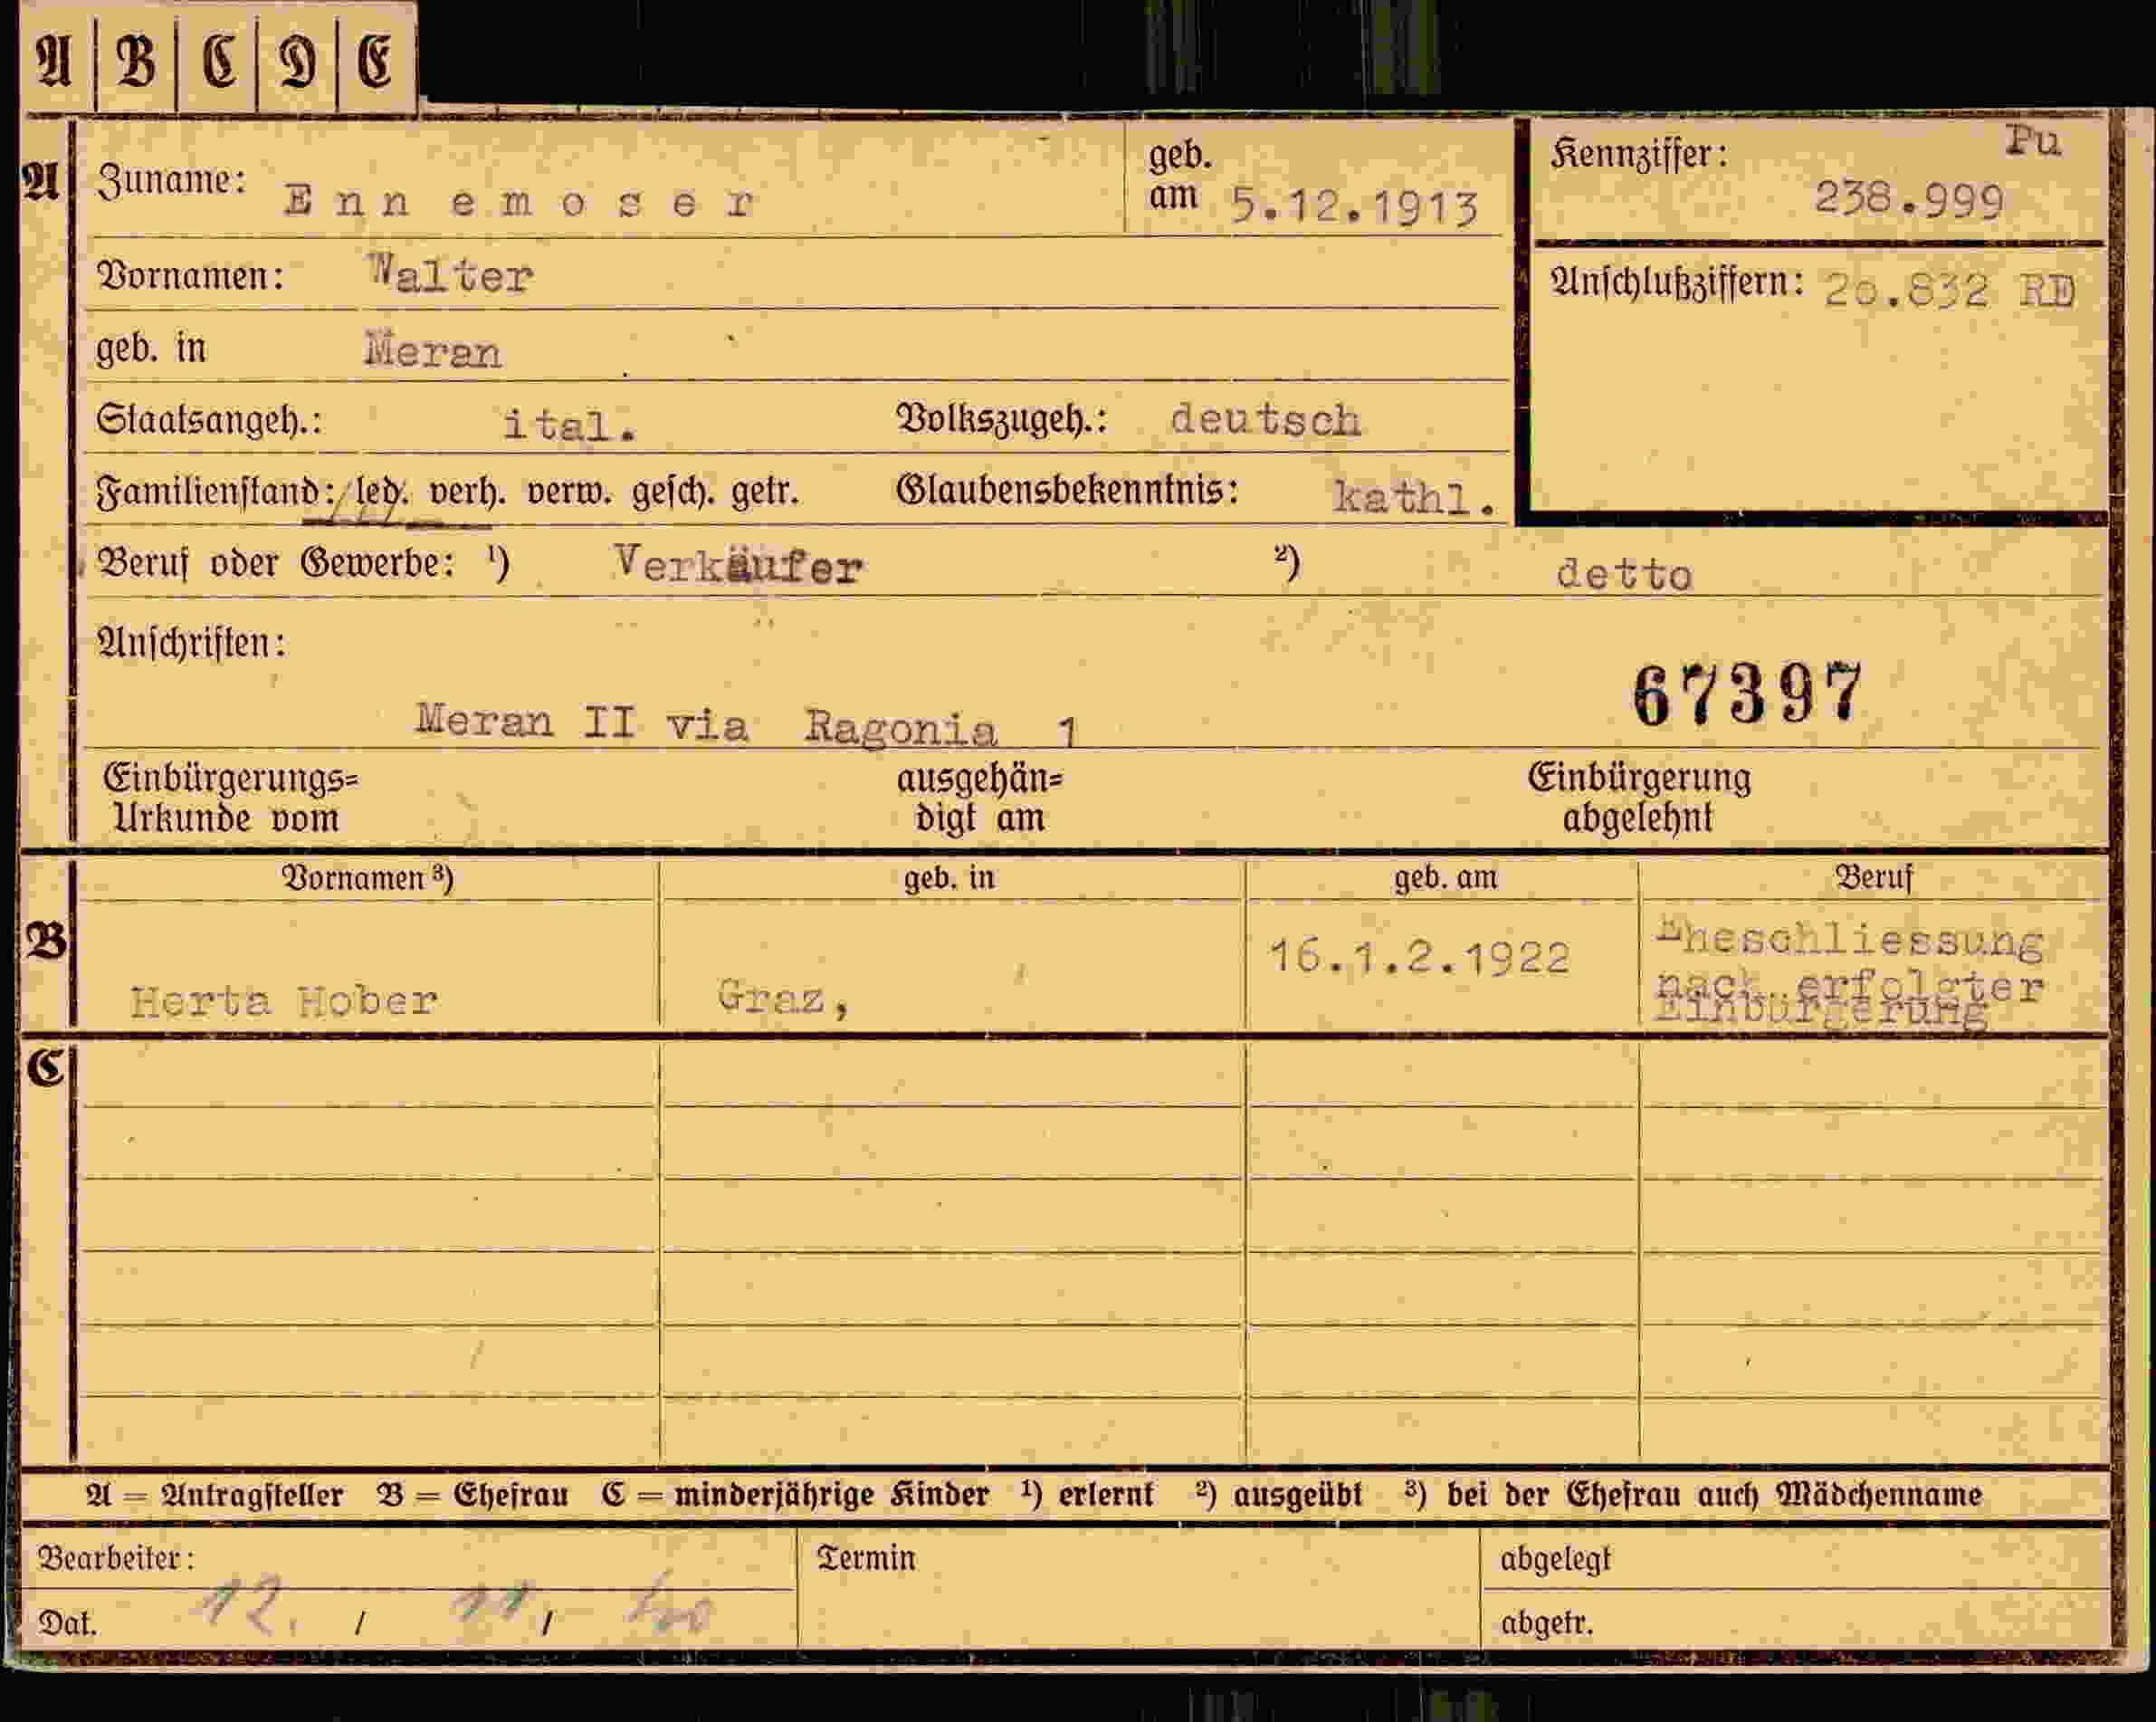 A B C D E
A Zuname: Ennemoser geb. am 5.12.1913 Kennziffer: Pu 238.999
Vornamen: Walter Anschlußziffern: 20.832 RD
geb. in Meran
Staatsangeh.: ital. Volkszugeh.: deutsch
Familienstand: led. verh. verw. gesch. getr. Glaubensbekenntnis: kathl.
Beruf oder Gewerbe: ¹) Verkäufer ²) detto
Anschriften:
67397
Meran II via Ragonia 1
Einbürgerungs= ausgehän= Einbürgerung
Urkunde vom digt am abgelehnt
Vornamen ³) geb. in geb. am Beruf
B Herta Hober Graz, 16.1.2.1922 Eheschliessung
nach erfolgter
Einbürgerung
C
A = Antragsteller B = Ehefrau C = minderjährige Kinder ¹) erlernt ²) ausgeübt ³) bei der Ehefrau auch Mädchenname
Bearbeiter: Termin abgelegt
Dat. 12. / 11 / 40 abgetr.